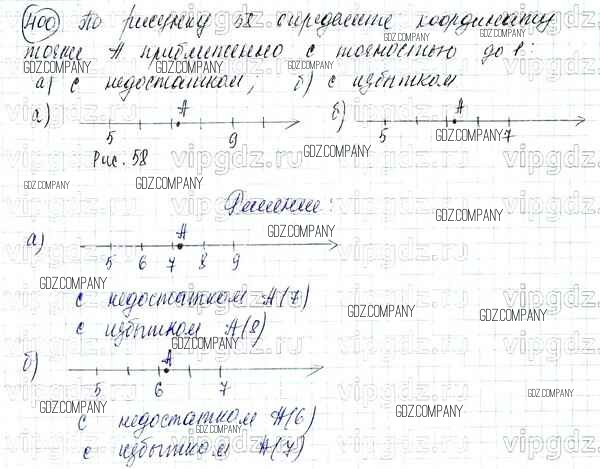 400 По рисунку 58 определите координату
точки А приближенно с точностью до 1:
а) с недостатком, б) с избытком
а) А б) А
5 9 5 7
Рис. 58
Решение:
а) А
5 6 7 8 9
с недостатком А(7)
с избытком А(8)
б) А
5 6 7
с недостатком А(6)
с избытком А(7)
GDZ.COMPANY
vipgdz.ru